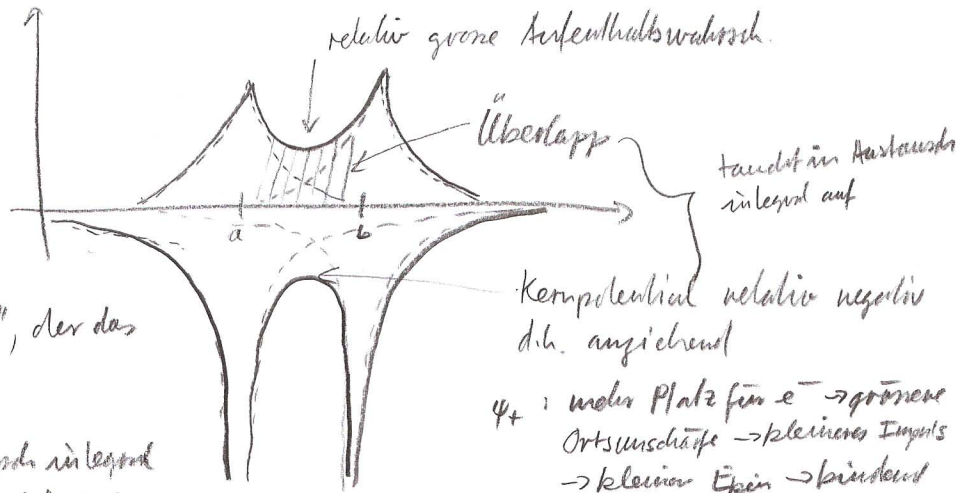 relativ grosse Aufenthaltswahrsch.
Überlapp
taucht in Austausch
integral auf
a
b
Kernpotential relativ negativ
d.h. anziehend
", der das
ψ₊ : mehr Platz für e⁻ → grössere
Ortsunschärfe → kleinerer Impuls
→ kleinere Ekin → bindend
sch integral